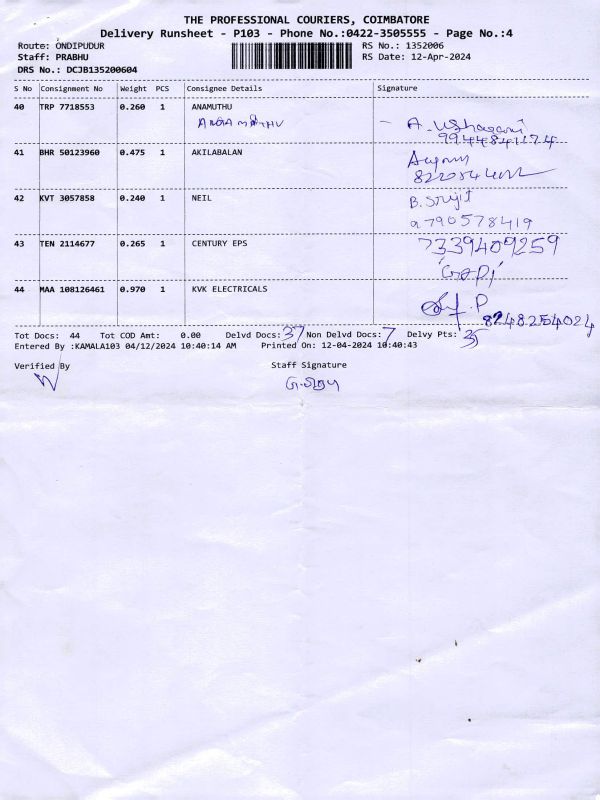 THE PROFESSIONAL COURIERS, COIMBATORE
Delivery Runsheet - P103 - Phone No.:0422-3505555 - Page No.:4
Route: ONDIPUDUR RS No.: 1352006
Staff: PRABHU RS Date: 12-Apr-2024
DRS No.: DCJB135200604
S No Consignment No Weight PCS Consignee Details Signature
40 TRP 7718553 0.260 1 ANAMUTHU
A. Usharani
41 BHR 50123960 0.475 1 AKILABALAN
42 KVT 3057858 0.240 1 NEIL B. Srijit
9790578419
43 TEN 2114677 0.265 1 CENTURY EPS 7339409259
Gopi
44 MAA 108126461 0.970 1 KVK ELECTRICALS
8248254024
Tot Docs: 44 Tot COD Amt: 0.00 Delvd Docs: 37 Non Delvd Docs: 7 Delvy Pts: 35
Entered By :KAMALA103 04/12/2024 10:40:14 AM Printed On: 12-04-2024 10:40:43
Verified By Staff Signature